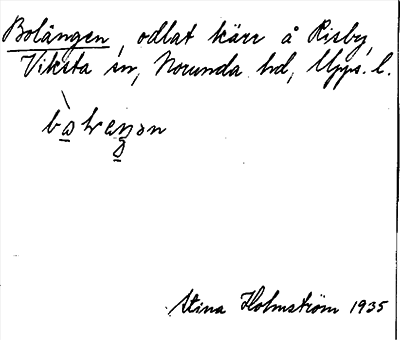 Bolången, odlat kärr å Risby,
Viksta sn, Norunda hd, Upps. l.
Stina Holmström 1935